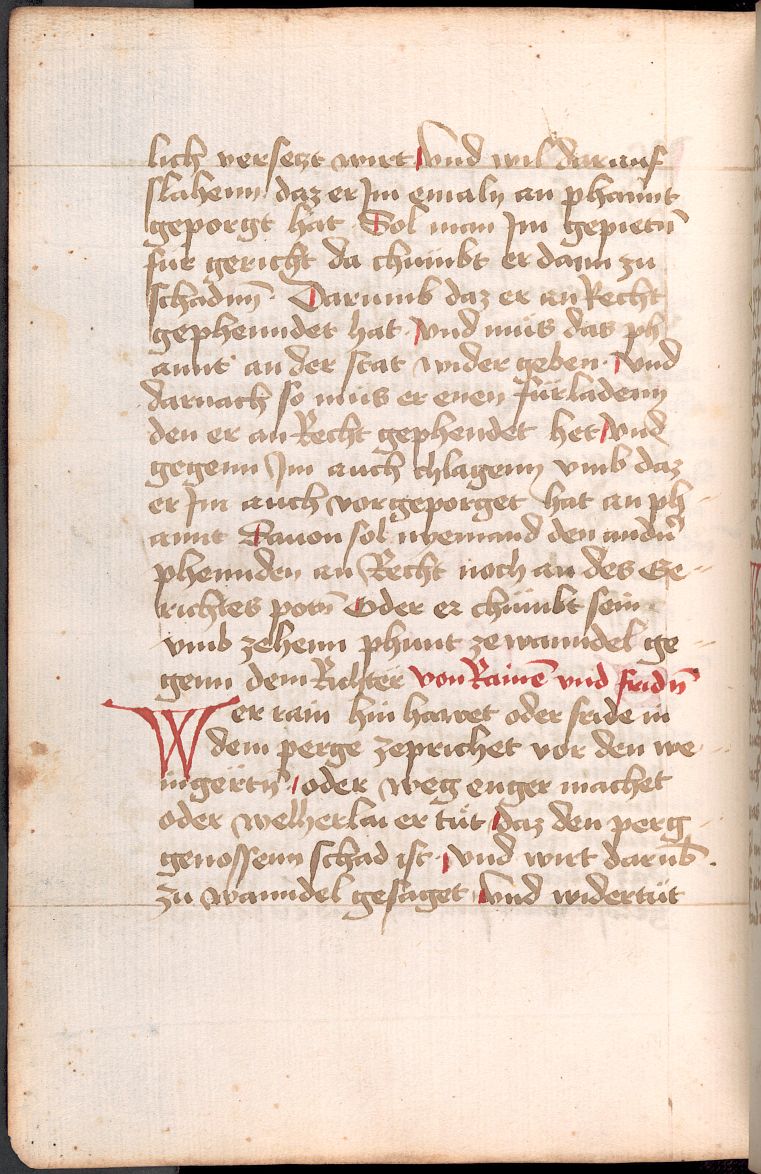 lich versetzt wirt Vnd wil darauf
slahenn daz er Im emaln an phannt
geporgt hat Sol man Im gepietñ
fur gericht da chumbt er dann zu
schadnn Darumb daz er an Recht
gephenndet hat vnd mus das ph
annt an der stat wider geben Vnd
darnach so mus er enen furladenn
den er an Recht gephendet het Vnd
gegenn Im auch chlagenn vmb daz
er Im auch vor geporget hat an ph
annt Dauon sol nyemand den andñ
phennden an Recht noch an des Ge
richtes potñ Oder er chumbt sein
vmb zehenn phunt ze wanndel ge
genn dem Richter von Rainẽ vnd fridñ
Wer rain hin hawet oder fride in
dem perge zeprichet vor den we
ingertñ oder weg enger machet
oder welherlai er tut daz den perg
genossenn schad ist vnd wirt darub̃
zu wanndel gesaget Vnd widertut